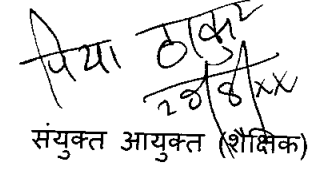 पिया ठाकुर
29/8/xx
संयुक्त आयुक्त (शैक्षिक)